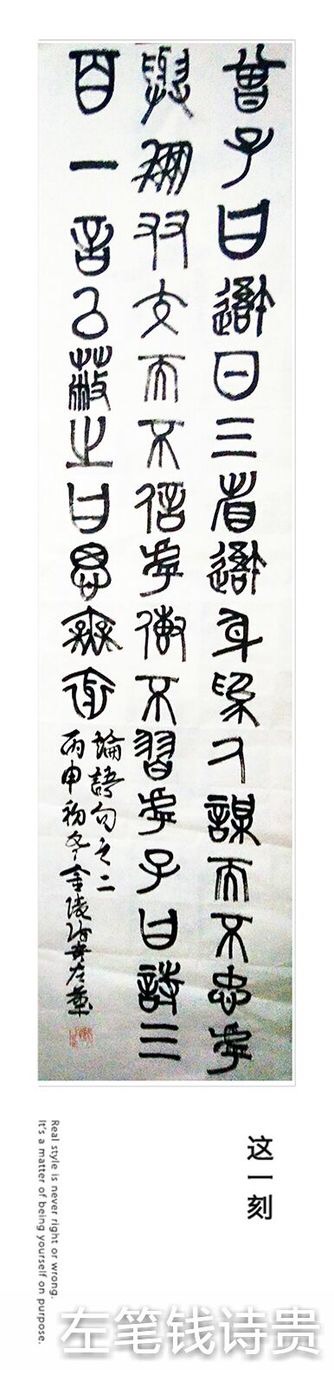 曾子曰吾日三省吾身為人謀而不忠乎
與朋友交而不信乎傳不習乎子曰詩三
百一言以蔽之曰思無邪
論語句之二
丙申初冬金陵詩貴左筆
这一刻
Real style is never right or wrong.
It's a matter of being yourself on purpose.
左笔钱诗贵